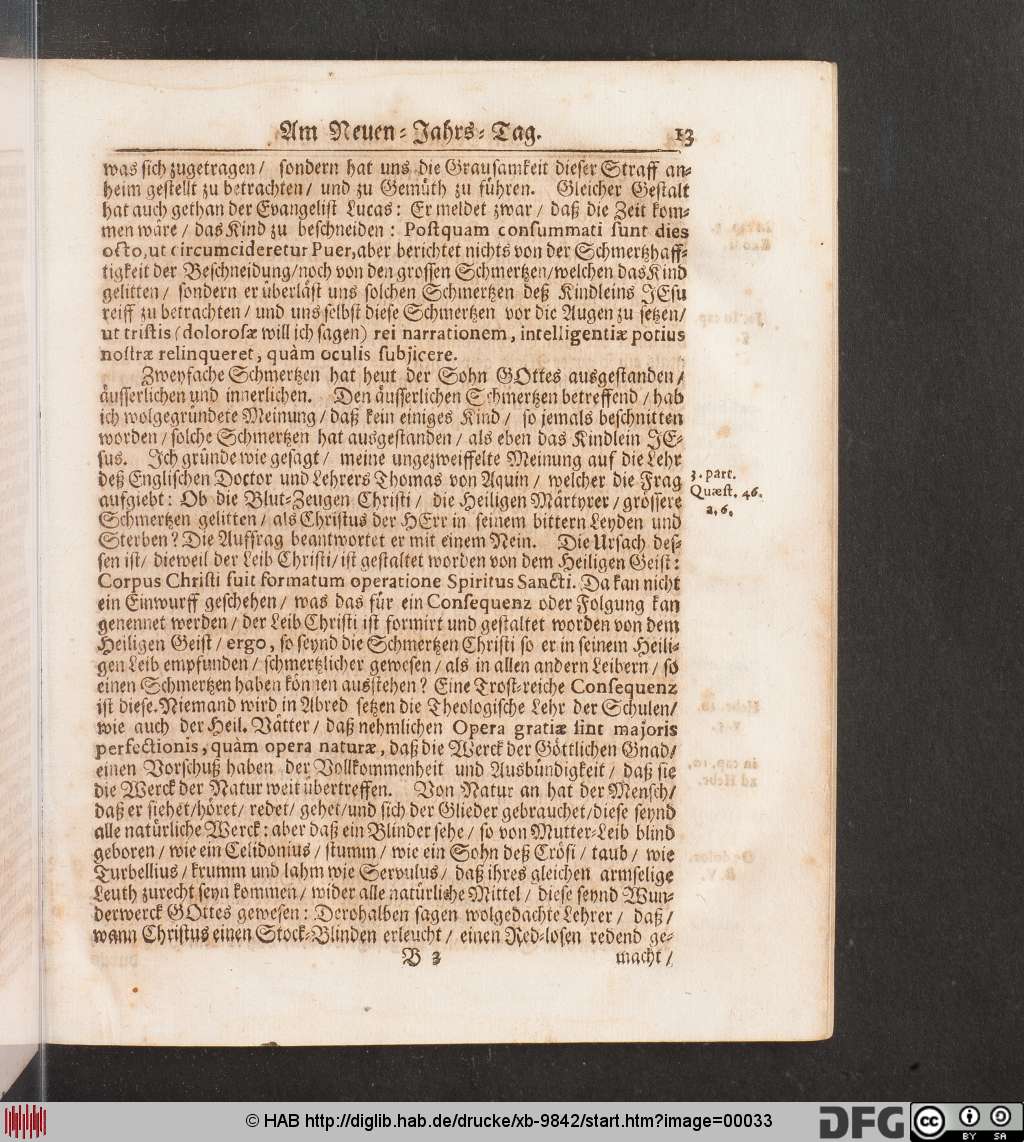 Am Neuen-Jahrs-Tag. 13
was sich zugetragen/ sondern hat uns die Grausamkeit dieser Straff an-
heim gestellt zu betrachten/ und zu Gemüth zu führen. Gleicher Gestalt
hat auch gethan der Evangelist Lucas: Er meldet zwar/ daß die Zeit kom-
men wäre/ das Kind zu beschneiden: Postquam consummati sunt dies
octo, ut circumcideretur Puer, aber berichtet nichts von der Schmertzhaff-
tigkeit der Beschneidung/ noch von den grossen Schmertzen/ welchen das Kind
gelitten/ sondern er überläst uns solchen Schmertzen deß Kindleins JEsu
reiff zu betrachten/ und uns selbst diese Schmertzen vor die Augen zu setzen/
ut tristis (dolorosæ will ich sagen) rei narrationem, intelligentiæ potius
nostræ relinqueret, quàm oculis subjicere.
Zweyfache Schmertzen hat heut der Sohn GOttes ausgestanden/
äusserlichen und innerlichen. Den äusserlichen Schmertzen betreffend/ hab
ich wolgegründete Meinung/ daß kein einiges Kind/ so jemals beschnitten
worden/ solche Schmertzen hat ausgestanden/ als eben das Kindlein JE-
sus. Ich gründe wie gesagt/ meine ungezweiffelte Meinung auf die Lehr
deß Englischen Doctor und Lehrers Thomas von Aquin/ welcher die Frag
aufgiebt: Ob die Blut-Zeugen Christi/ die Heiligen Märtyrer/ grössere
Schmertzen gelitten/ als Christus der HErr in seinem bittern Leyden und
Sterben? Die Auffrag beantwortet er mit einem Nein. Die Ursach des-
sen ist/ dieweil der Leib Christi/ ist gestaltet worden von dem Heiligen Geist:
Corpus Christi fuit formatum operatione Spiritus Sancti. Da kan nicht
ein Einwurff geschehen/ was das für ein Consequenz oder Folgung kan
genennet werden/ der Leib Christi ist formirt und gestaltet worden von dem
Heiligen Geist/ ergo, so seynd die Schmertzen Christi so er in seinem Heili-
gen Leib empfunden/ schmertzlicher gewesen/ als in allen andern Leibern/ so
einen Schmertzen haben können ausstehen? Eine Trost-reiche Consequenz
ist diese. Niemand wird in Abred setzen die Theologische Lehr der Schulen/
wie auch der Heil. Vätter/ daß nehmlichen Opera gratiæ sint majoris
perfectionis, quàm opera naturæ, daß die Werck der Göttlichen Gnad/
einen Vorschuß haben der Vollkommenheit und Ausbündigkeit/ daß sie
die Werck der Natur weit übertreffen. Von Natur an hat der Mensch/
daß er siehet/ höret/ redet/ gehet/ und sich der Glieder gebrauchet/ diese seynd
alle natürliche Werck: aber daß ein Blinder sehe/ so von Mutter-Leib blind
geboren/ wie ein Celidonius/ stumm/ wie ein Sohn deß Crösi/ taub/ wie
Turbellius/ krumm und lahm wie Servulus/ daß ihres gleichen armselige
Leuth zurecht seyn kommen/ wider alle natürliche Mittel/ diese seynd Wun-
derwerck GOttes gewesen: Derohalben sagen wolgedachte Lehrer/ daß/
wann Christus einen Stock-Blinden erleucht/ einen Red-losen redend ge-
B 3 macht/
3. part.
Quæst. 46.
a. 6.
© HAB http://diglib.hab.de/drucke/xb-9842/start.htm?image=00033
DFG
cc
BY SA